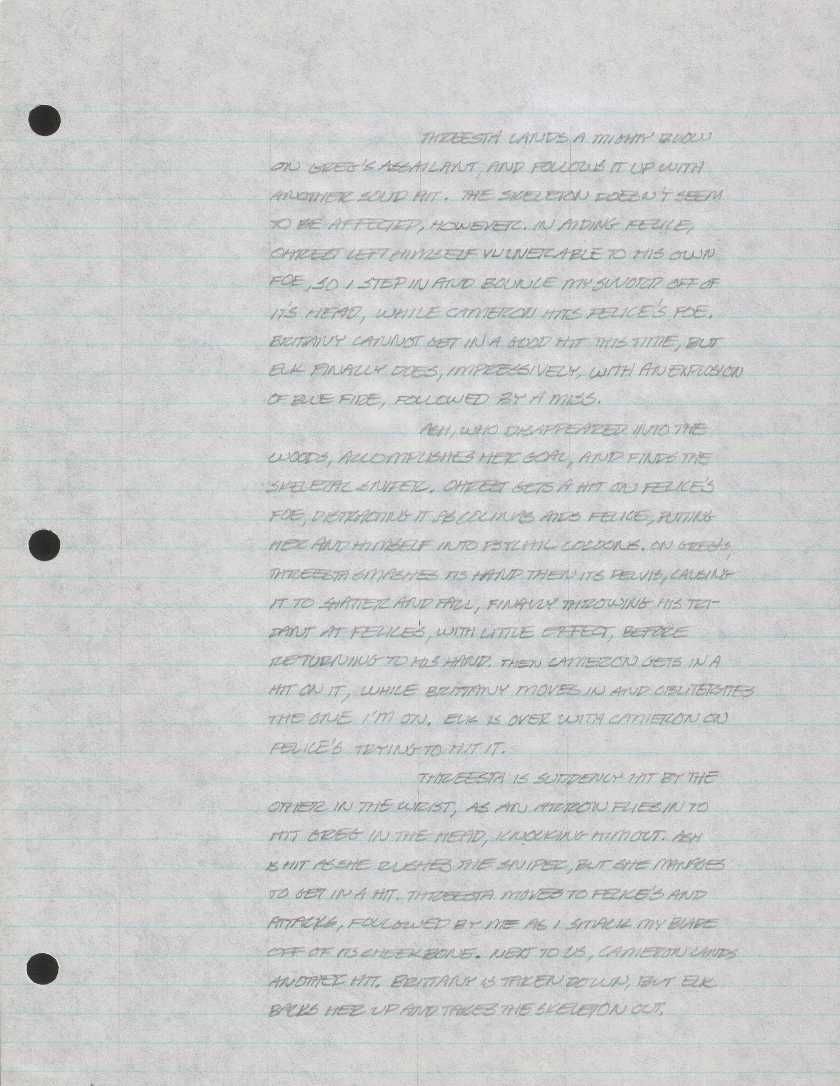 THREESTA LANDS A MIGHTY BLOW
ON GREG'S ASSAILANT, AND FOLLOWS IT UP WITH
ANOTHER SOLID HIT. THE SKELETON DOESN'T SEEM
TO BE AFFECTED, HOWEVER. IN AIDING FELICE,
OHREST LEFT HIMSELF VULNERABLE TO HIS OWN
FOE, SO I STEP IN AND BOUNCE MY SWORD OFF OF
IT'S HEAD, WHILE CAMERON HITS FELICE'S FOE.
BRITTANY CANNOT GET IN A GOOD HIT THIS TIME, BUT
ELK FINALLY DOES, IMPRESSIVELY, WITH AN EXPLOSION
OF BLUE FIRE, FOLLOWED BY A MISS.
ASH, WHO DISAPPEARED INTO THE
WOODS, ACCOMPLISHES HER GOAL, AND FINDS THE
SKELETAL SNIPER. OHREST GETS A HIT ON FELICE'S
FOE, DISTRACTING IT AS COLINAS AIDS FELICE, PUTTING
HER AND HIMSELF INTO PSYCHIC COCOONS. ON GREG'S,
THREESTA SMASHES ITS HAND THEN ITS PELVIS, CAUSING
IT TO SHATTER AND FALL, FINALLY THROWING HIS TRI-
DANT AT FELICE'S, WITH LITTLE EFFECT, BEFORE
RETURNING TO HIS HAND. THEN CAMERON GETS IN A
HIT ON IT, WHILE BRITTANY MOVES IN AND OBLITERATES
THE ONE I'M ON. ELK IS OVER WITH CAMERON ON
FELICE'S TRYING TO HIT IT.
THREESTA IS SUDDENLY HIT BY THE
OTHER IN THE WRIST, AS AN ARROW FLIES IN TO
HIT GREG IN THE HEAD, KNOCKING HIM OUT. ASH
IS HIT AS SHE RUSHES THE SNIPER, BUT SHE MANAGES
TO GET IN A HIT. THREESTA MOVES TO FELICE'S AND
ATTACKS, FOLLOWED BY ME AS I SMACK MY BLADE
OFF OF ITS CHEEKBONE. NEXT TO US, CAMERON LANDS
ANOTHER HIT. BRITTANY IS TAKEN DOWN, BUT ELK
BACKS HER UP AND TAKES THE SKELETON OUT.